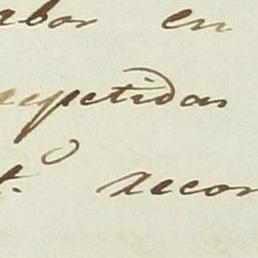 abor en
repetidas
t.º recon